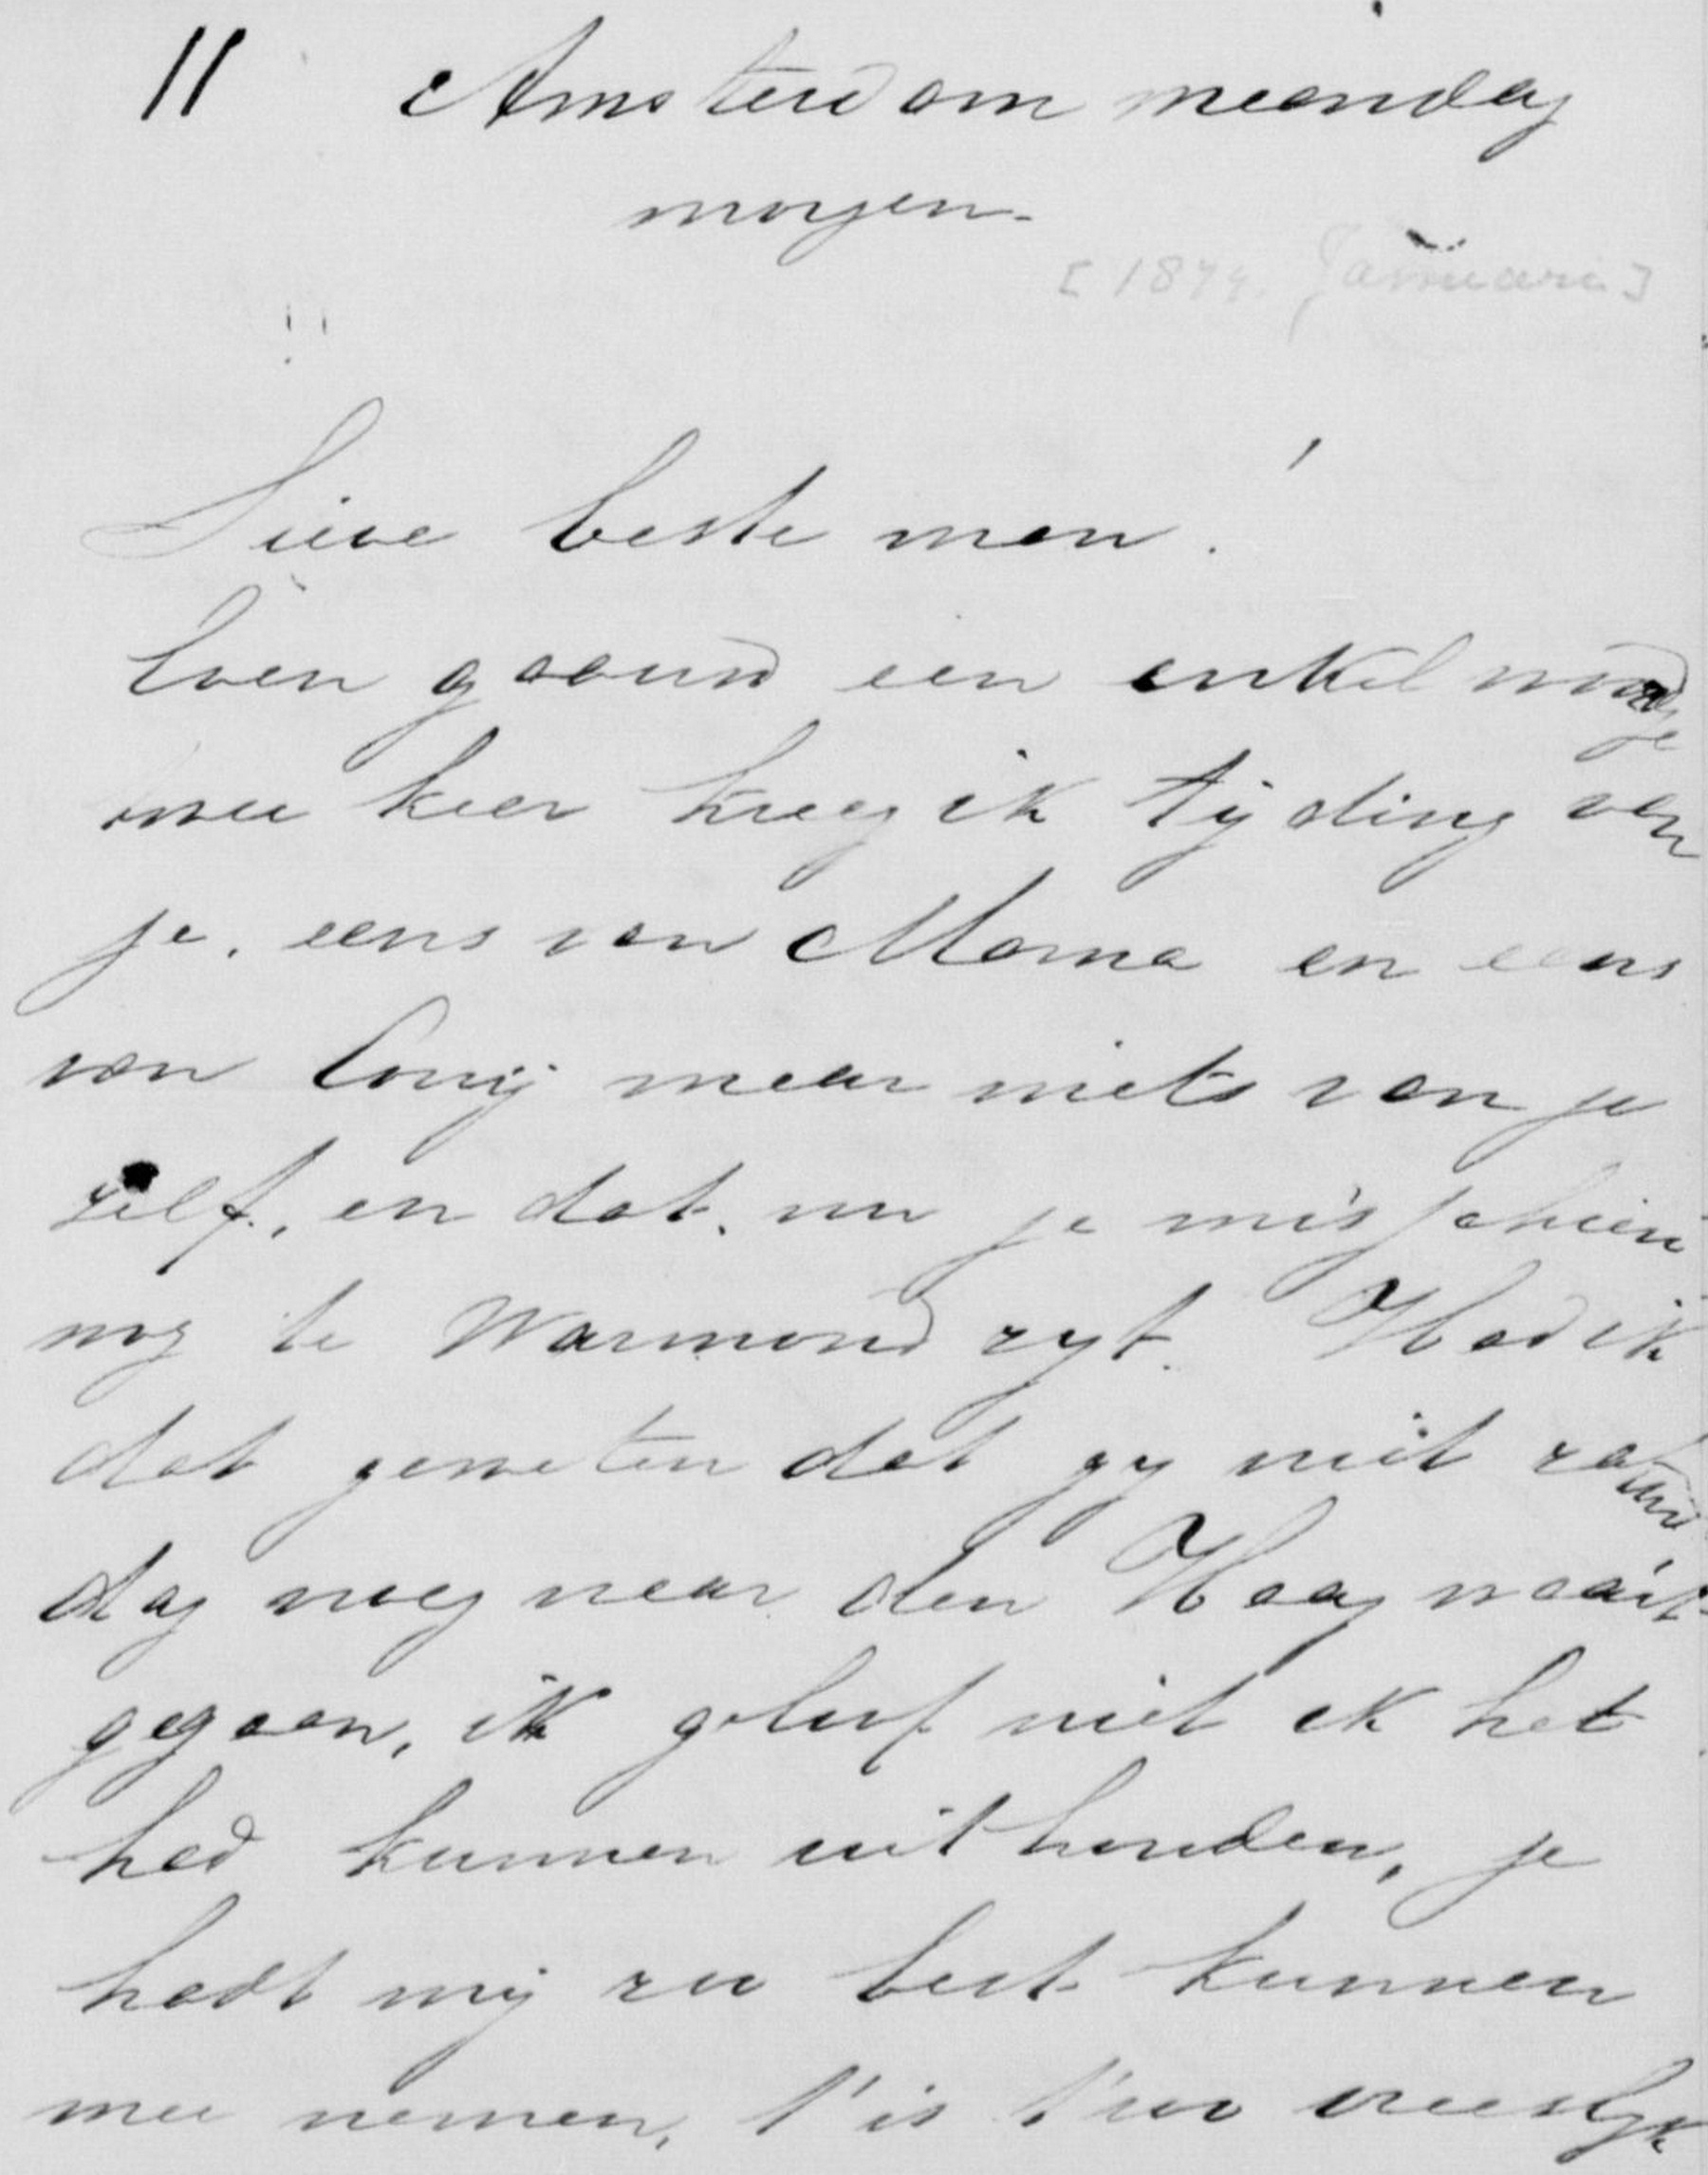 11 Amsterdam maandag
morgen.
[1874. Januari]
Lieve beste man!
Even gaauw een enkel woordje
twee keer kreeg ik tijding van
je. eens van Mama en eens
van Conij maar niets van je
zelf, en dat. nu je misschien
nog te Warmond zyt. Had ik
dat geweten dat gy niet zatur
dag nog naar den Haag waart
gegaan, ik geloof niet ik het
had kunnen uithouden, je
hadt mij zoo best kunnen
mee nemen, t'is t'zoo vreeslyk